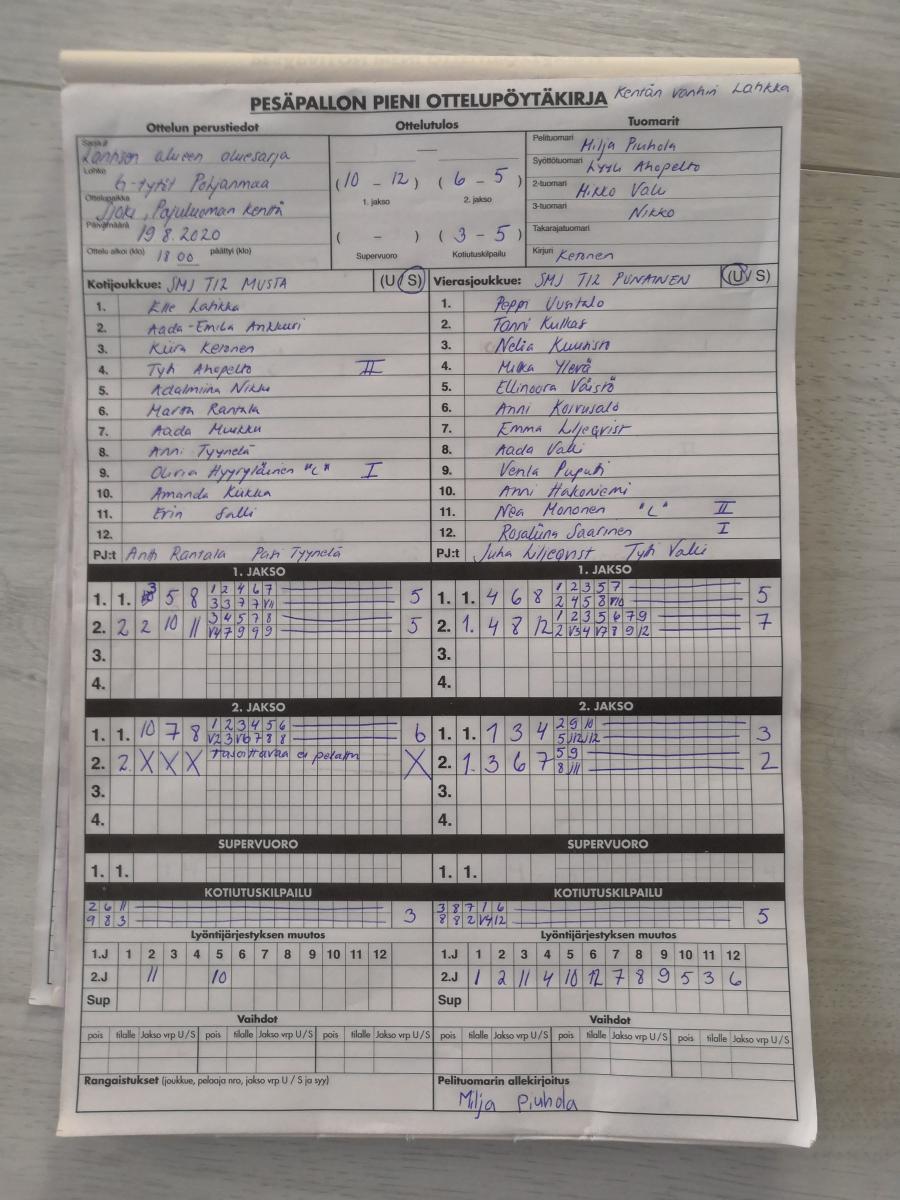 PESÄPALLON PIENI OTTELUPÖYTÄKIRJA Kentän vanhin Latikka
Ottelun perustiedot Ottelutulos Tuomarit
Sarja alueen aluesarja
Lohko G-tytöt Pohjanmaa
Ottelupaikka Sjoki, Pajuluoman kenttä
Päivämäärä 19.8.2020
Ottelu alkoi (klo) 18 00 päättyi (klo)
—
(10 - 12) (6 - 5)
1. jakso 2. jakso
( - ) (3 - 5)
Supervuoro Kotiutuskilpailu
Pelituomari Milja Piuhola
Syöttötuomari Lyyli Ahopelto
2-tuomari Mikko Vali
3-tuomari Nikko
Takarajatuomari
Kirjuri Keronen
Kotijoukkue: SMJ T12 MUSTA (U/S)
1. Elle Latikka
2. Aada-Emilia Ankkuri
3. Kiira Keronen
4. Tyh Ahopelto II
5. Adalmiina Nikko
6. Martta Rantala
7. Aada Muukku
8. Anni Tyynelä
9. Olivia Hyyryläinen "L" I
10. Amanda Kukka
11. Erin Salli
12.
PJ:t Antti Rantala Pasi Tyynelä
Vierasjoukkue: SMJ T12 PUNAINEN (U/S)
1. Peppi Uusitalo
2. Tanni Kulkas
3. Nelia Kuunisto
4. Milka Ylevä
5. Ellinoora Väistö
6. Anni Koivusalo
7. Emma Liljeqvist
8. Aada Valli
9. Venla Puputi
10. Anni Hakoniemi
11. Nea Mononen "L" II
12. Rosaliina Saarinen I
PJ:t Juha Liljeqvist Valli
1. JAKSO
1. 1. 3 5 8 1 2 4 6 7 5
3 3 7 7 VII
2. 2 2 10 11 3 4 5 7 8 5
V4 7 9 9 9
3.
4.
1. JAKSO
1. 1. 4 6 8 1 2 3 5 7 5
2 4 5 8 V10
2. 1. 4 8 12 1 2 3 5 6 7 9 7
2 V3 4 V7 8 9 12
3.
4.
2. JAKSO
1. 1. 10 7 8 1 2 3 4 5 6 6
V2 3 V6 7 8 8
2. 2. X X X Tasoittavaa ei pelattu X
3.
4.
2. JAKSO
1. 1. 1 3 4 2 9 10 3
5 12 12
2. 1. 3 6 7 5 9 2
8 11
3.
4.
SUPERVUORO SUPERVUORO
1. 1. 1. 1.
KOTIUTUSKILPAILU
2 6 11 3
9 8 3
KOTIUTUSKILPAILU
3 8 7 1 6 5
8 8 2 V4 12
Lyöntijärjestyksen muutos
1.J 1 2 3 4 5 6 7 8 9 10 11 12
2.J 11 10
Sup
Lyöntijärjestyksen muutos
1.J 1 2 3 4 5 6 7 8 9 10 11 12
2.J 1 2 11 4 10 12 7 8 9 5 3 6
Sup
Vaihdot Vaihdot
pois tilalle Jakso vrp U/S pois tilalle Jakso vrp U/S pois tilalle Jakso vrp U/S
pois tilalle Jakso vrp U/S pois tilalle Jakso vrp U/S pois tilalle Jakso vrp U/S
Rangaistukset (joukkue, pelaaja nro, jakso vrp U / S ja syy)
Pelituomarin allekirjoitus
Milja Piuhola